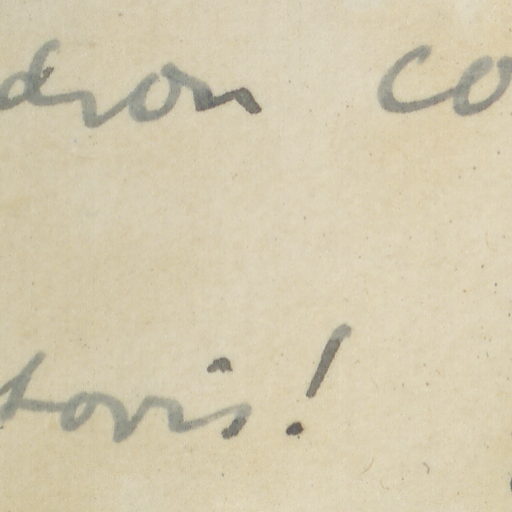 dron co
tovis!